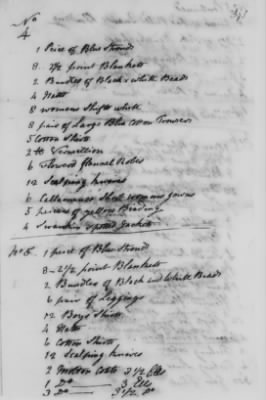 No
4
1 Piece of Blue Strouds
8 . 2½ point Blankets
2 Bundles of Black & White Beads
4 Hatts
8 womens Shifts white
8 pair of Large Blue Cotton Trowsers
5 Cotton Shirts
2 lb Vermillion
6 flowered flannel Robes
12 Scalping knives
6 Callamanco Short womans gowns
5 pieces of yellow Binding
4 Swanskin spotted Jackets
No 5. 1 piece of Blue Stroud
8 - 2½ point Blankett
2 Bundles of Black and White Beads
6 pair of Leggings
12 Boys Shirts
4 Hatts
6 Cotton Shirts
12 Scalping knives
2 Molton Coats 3½ Ells
1 Do 3 Ells
3 Do 3½ Do